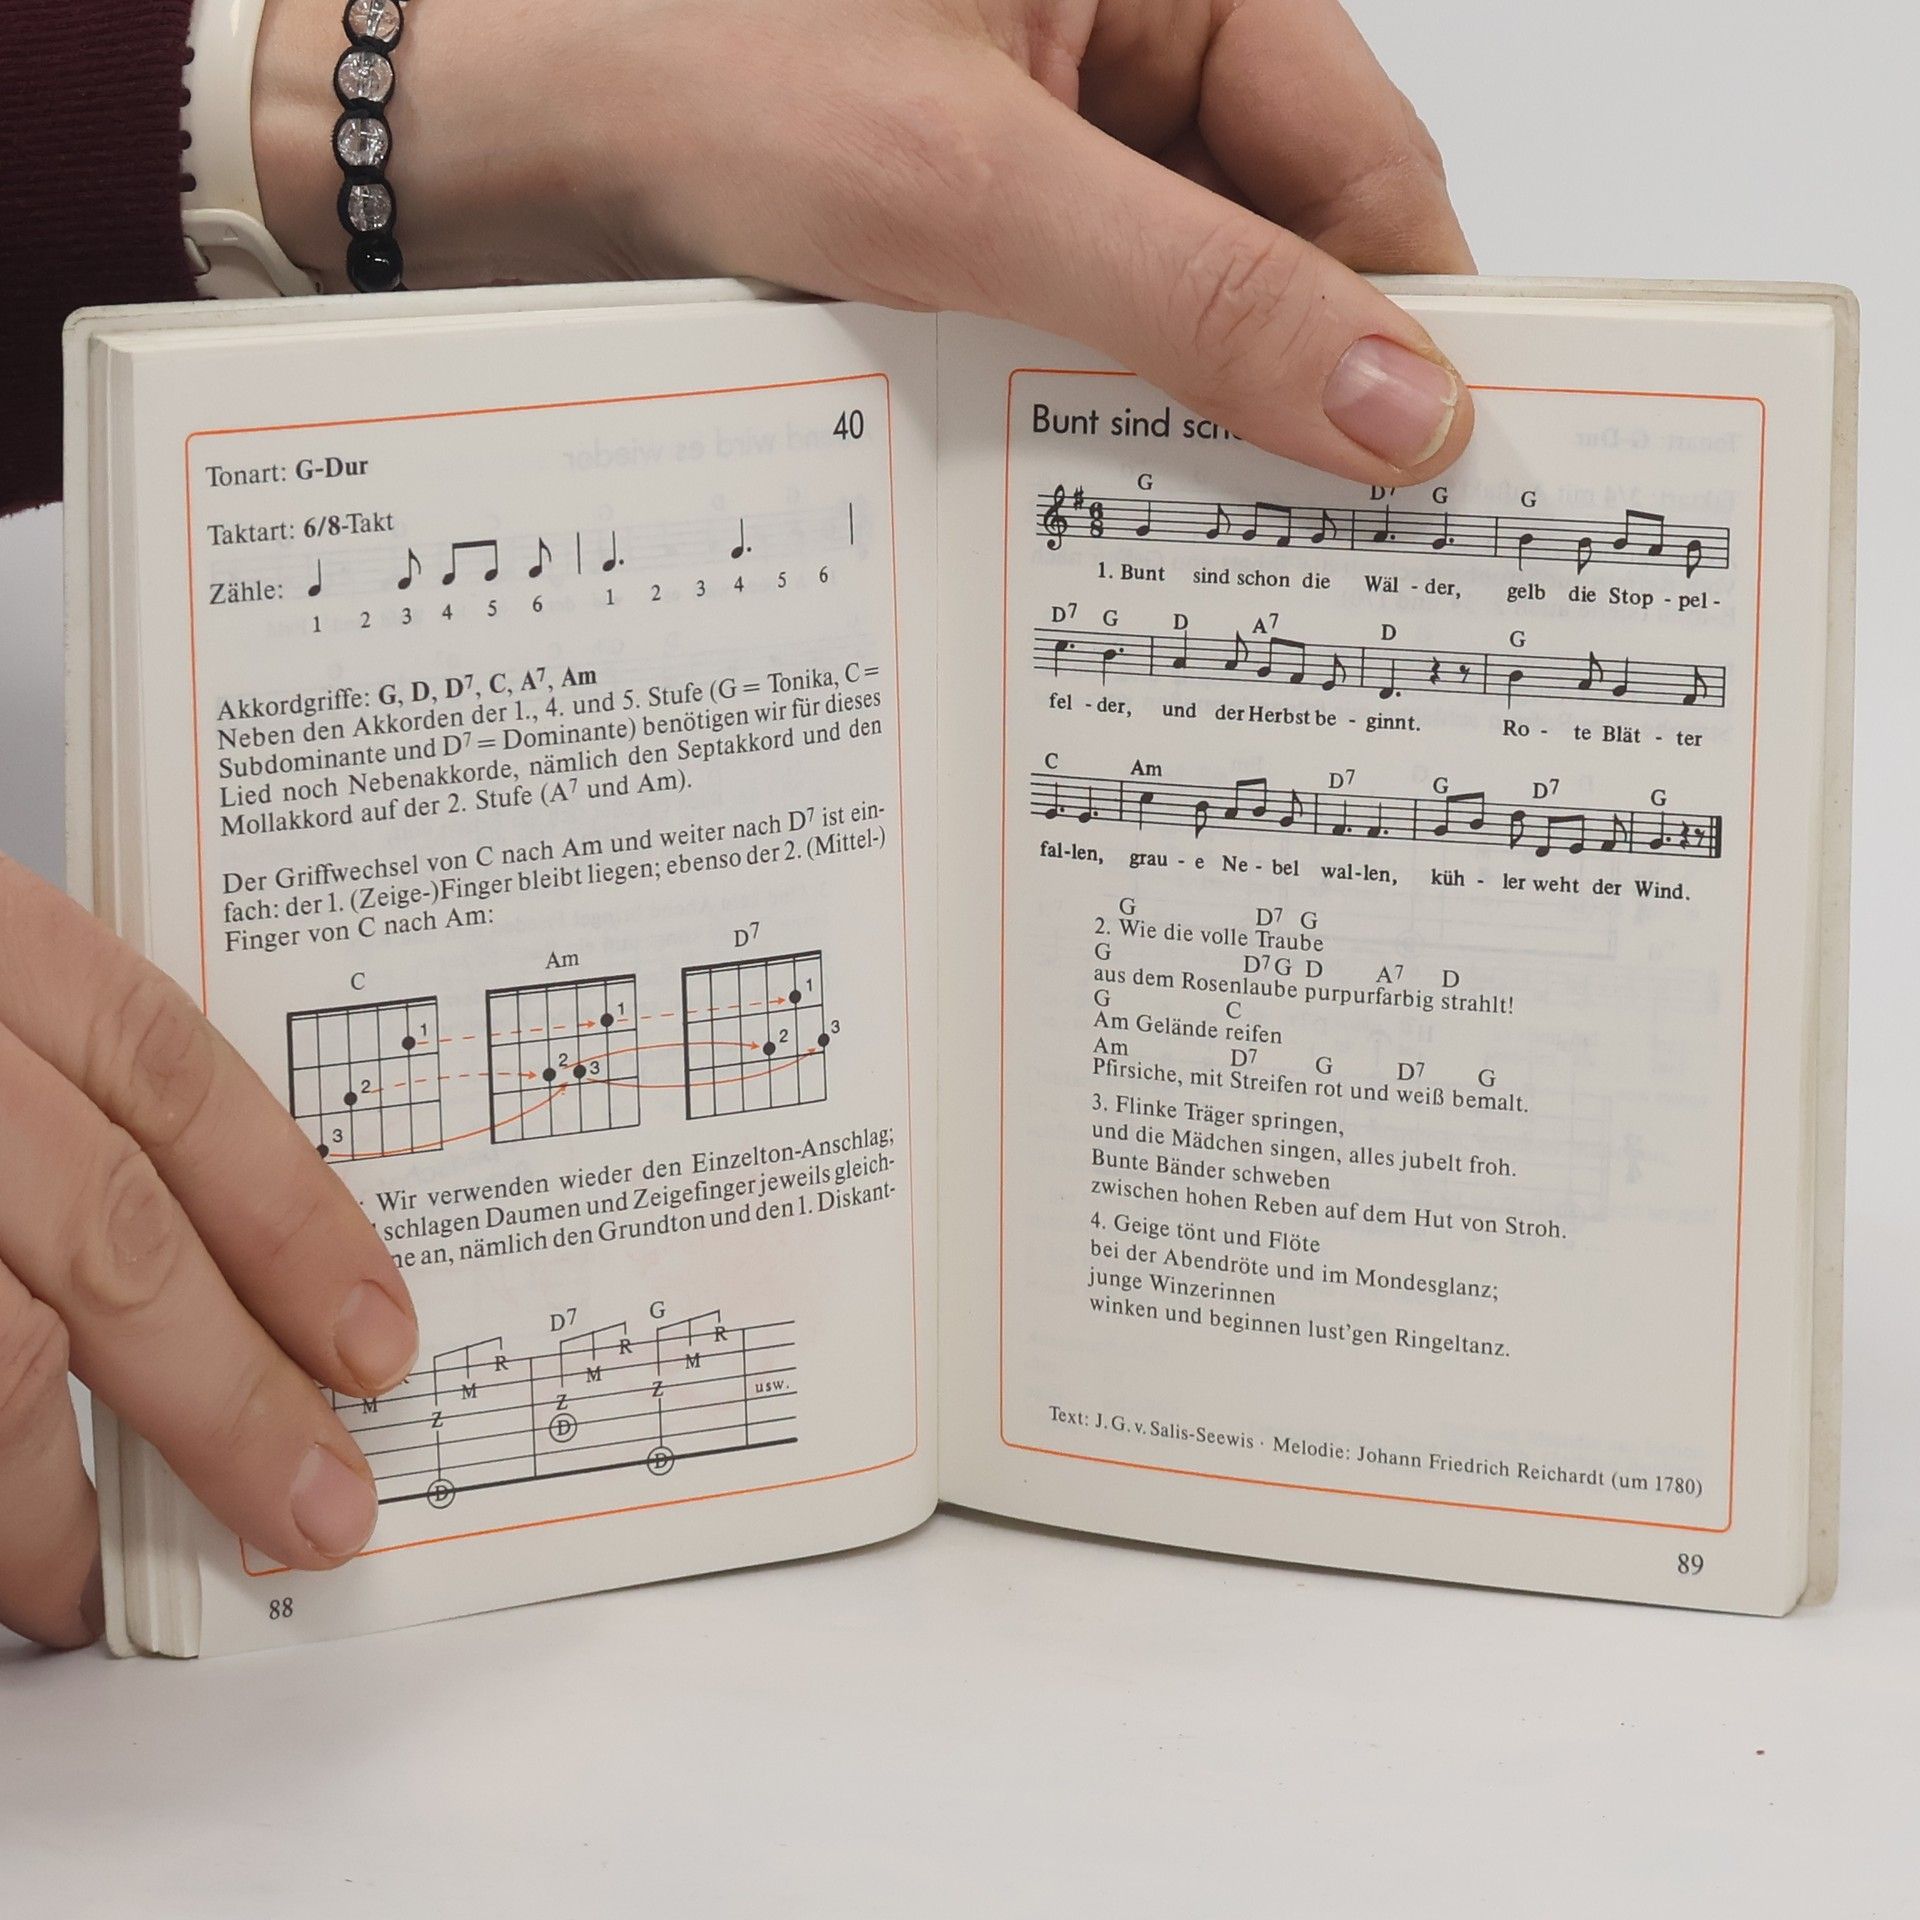 40
Tonart: G-Dur
Taktart: 6/8-Takt
Zähle:
1 2 3 4 5 6 1 2 3 4 5 6
Akkordgriffe: G, D, D7, C, A7, Am
Neben den Akkorden der 1., 4. und 5. Stufe (G = Tonika, C =
Subdominante und D7 = Dominante) benötigen wir für dieses
Lied noch Nebenakkorde, nämlich den Septakkord und den
Mollakkord auf der 2. Stufe (A7 und Am).
Der Griffwechsel von C nach Am und weiter nach D7 ist ein-
fach: der 1. (Zeige-)Finger bleibt liegen; ebenso der 2. (Mittel-)
Finger von C nach Am:
C Am D7
1 1 1
2 2 3 2 3
3
Wir verwenden wieder den Einzelton-Anschlag;
schlagen Daumen und Zeigefinger jeweils gleich-
an, nämlich den Grundton und den 1. Diskant-
D7 G
R R R
M M M M
Z Z Z usw.
D D D
88
Bunt sind
G D7 G G
6
8
1. Bunt sind schon die Wäl - der, gelb die Stop - pel -
D7 G D A7 D G
fel - der, und der Herbst be - ginnt. Ro - te Blät - ter
C Am D7 G D7 G
fal-len, grau - e Ne - bel wal-len, küh - ler weht der Wind.
G D7 G
2. Wie die volle Traube
G D7 G D A7 D
aus dem Rosenlaube purpurfarbig strahlt!
G C
Am Gelände reifen
Am D7 G D7 G
Pfirsiche, mit Streifen rot und weiß bemalt.
3. Flinke Träger springen,
und die Mädchen singen, alles jubelt froh.
Bunte Bänder schweben
zwischen hohen Reben auf dem Hut von Stroh.
4. Geige tönt und Flöte
bei der Abendröte und im Mondesglanz;
junge Winzerinnen
winken und beginnen lust'gen Ringeltanz.
Text: J. G. v. Salis-Seewis · Melodie: Johann Friedrich Reichardt (um 1780)
89